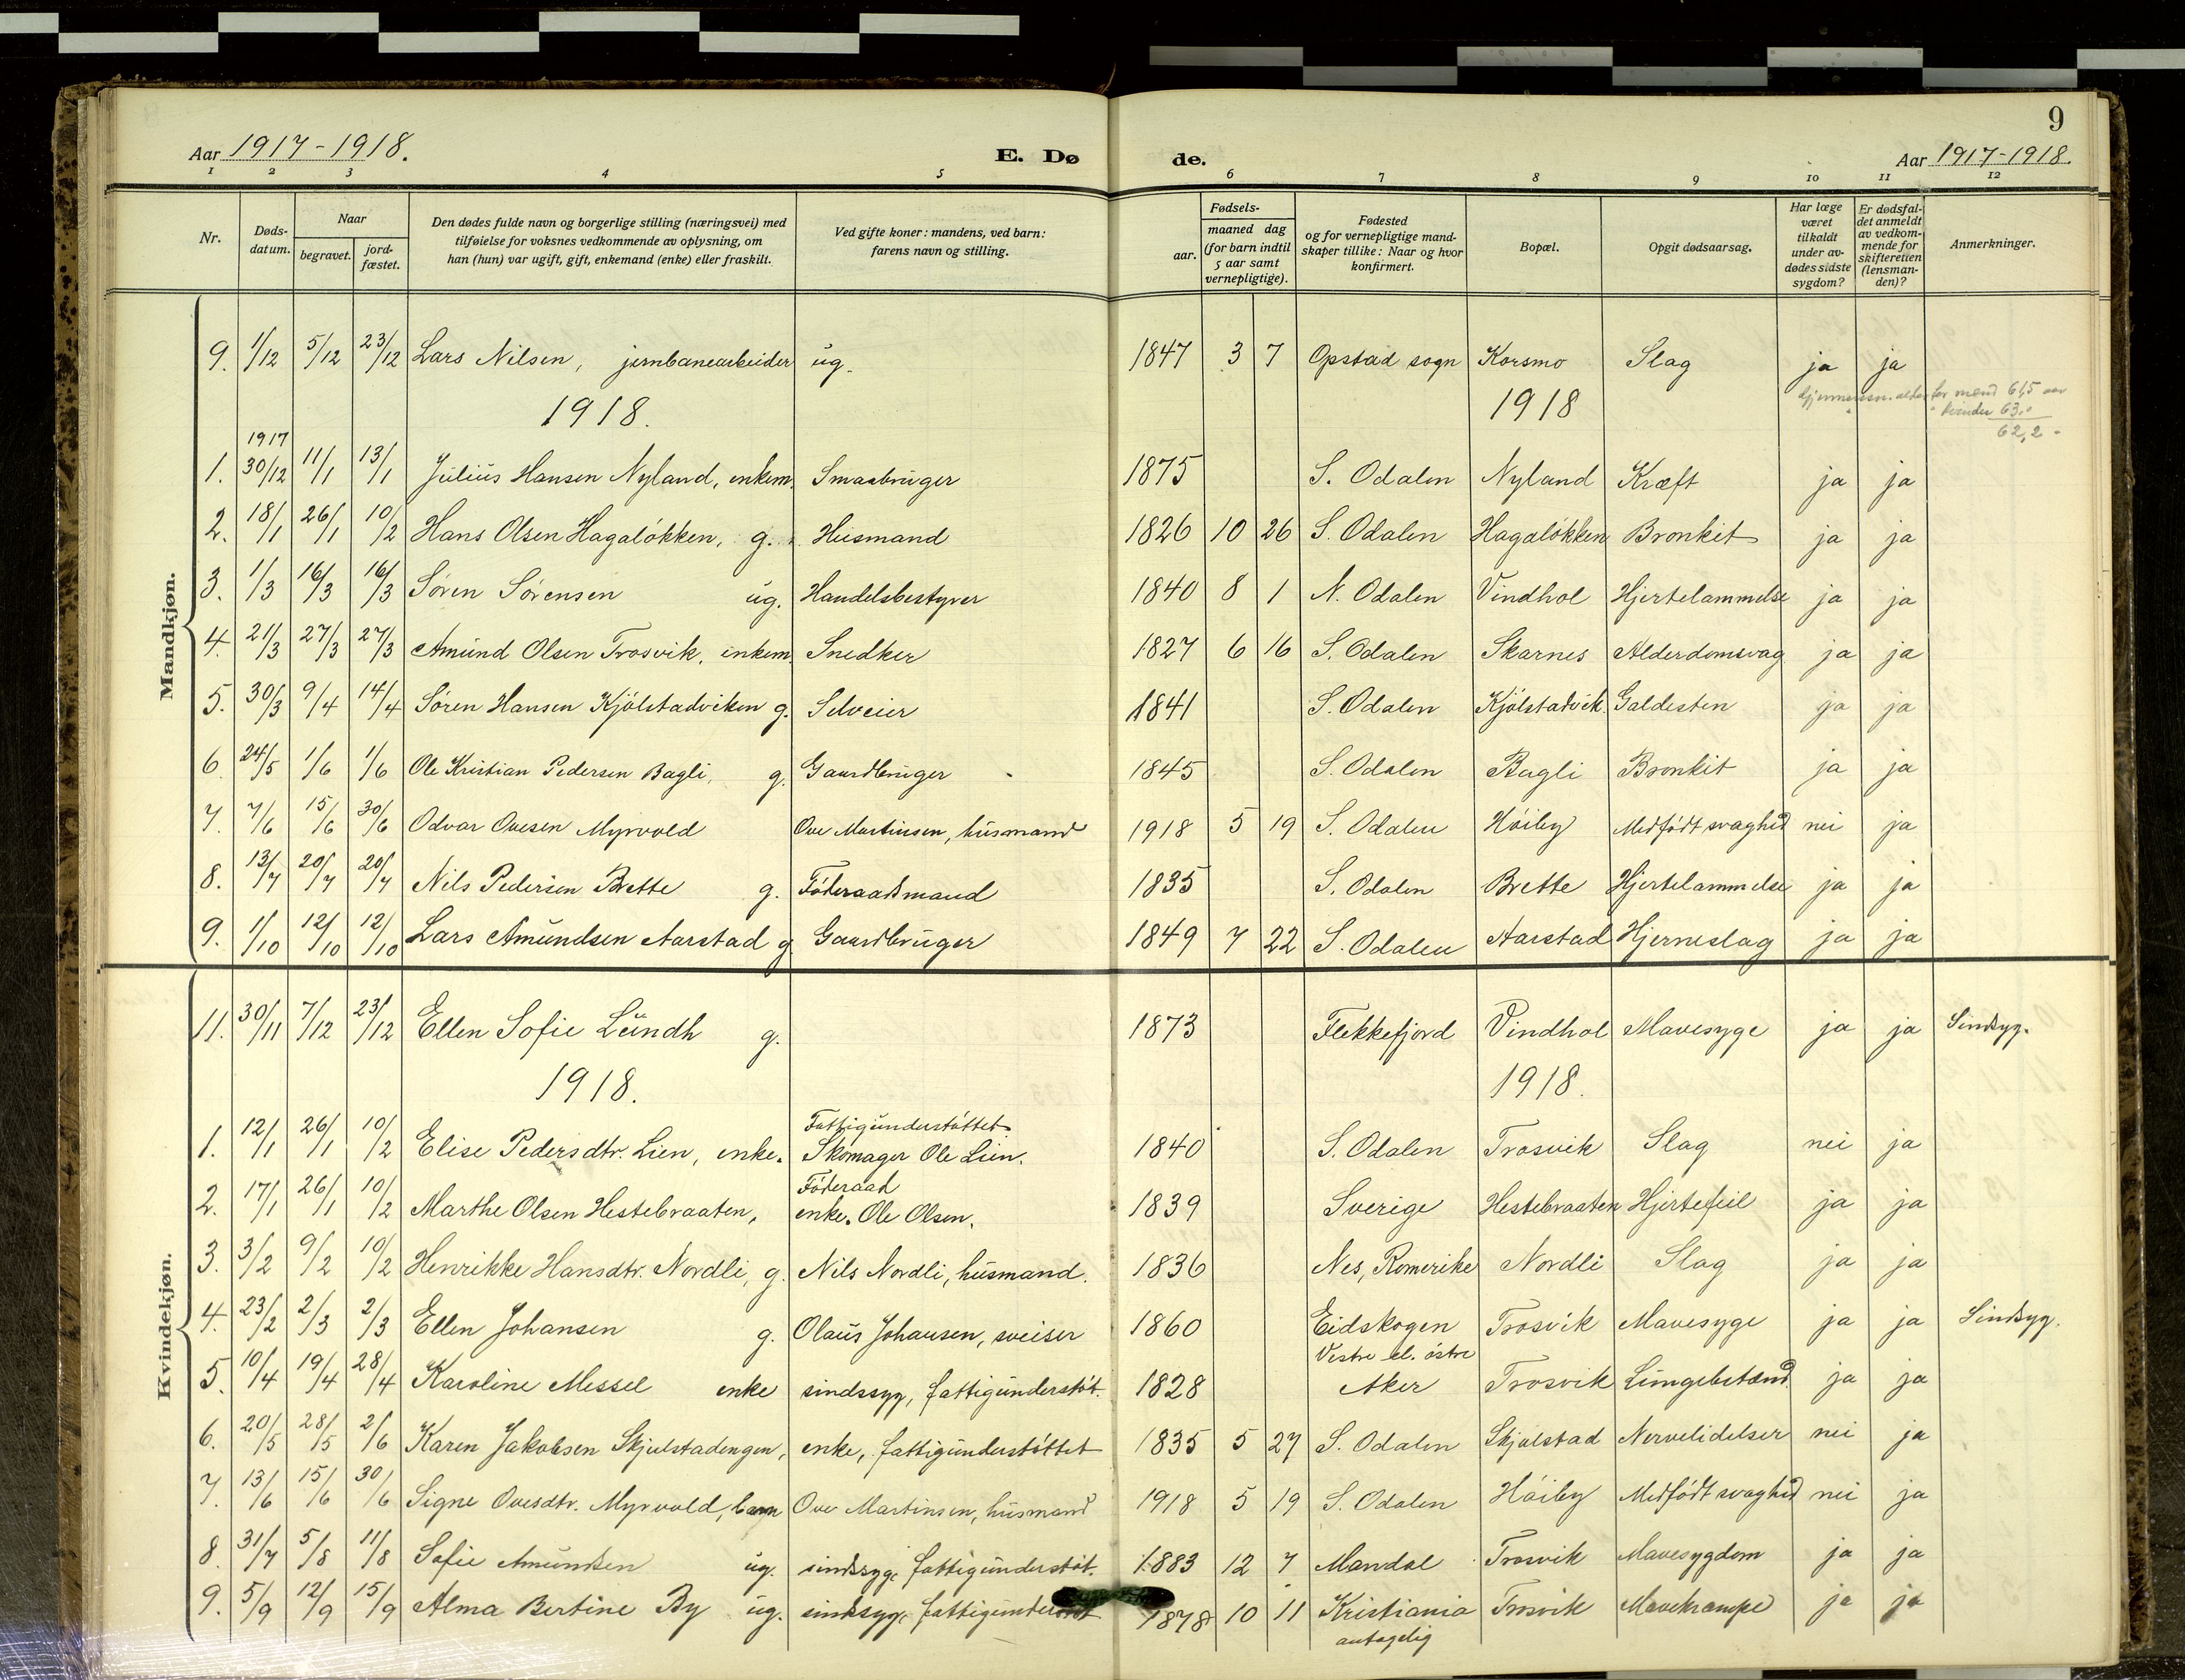 9
Aar 1917-1918.
E. Dø
de.
Aar 1917-1918.
1 2 3 4 5 6 7 8 9 10 11 12
Nr.
Døds-
datum.
Naar
begravet.
jord-
fæstet.
Den dødes fulde navn og borgerlige stilling (næringsvei) med
tilføielse for voksnes vedkommende av oplysning, om
han (hun) var ugift, gift, enkemand (enke) eller fraskilt.
Ved gifte koner: mandens, ved barn:
farens navn og stilling.
Fødsels-
aar.
maaned dag
(for barn indtil
5 aar samt
vernepligtige).
Fødested
og for vernepligtige mand-
skaper tillike: Naar og hvor
konfirmert.
Bopæl.
Opgit dødsaarsag.
Har læge
været
tilkaldt
under av-
dødes sidste
sygdom?
Er dødsfal-
det anmeldt
av vedkom-
mende for
skifteretten
(lensman-
den)?
Anmerkninger.
Mandkjøn.
9. 1/12 5/12 23/12 Lars Nilsen, jernbanearbeider ug. 1847 3 7 Opstad sogn Korsmo Slag ja ja
for mænd 61,5 aar
" kvinder 63,0
62,2 -
1918. 1918
1917
1. 30/12 11/1 13/1 Julius Hansen Nyland, enkem. Smaabruger 1875 S. Odalen Nyland Kræft ja ja
2. 18/1 26/1 10/2 Hans Olsen Hagaløkken, g. Husmand 1826 10 26 S. Odalen Hagaløkken Bronkit ja ja
3. 1/3 16/3 16/3 Søren Sørensen ug. Handelsbestyrer 1840 8 1 N. Odalen Vindhol Hjertelammelse ja ja
4. 21/3 27/3 27/3 Amund Olsen Trosvik, enkem. Snedker 1827 6 16 S. Odalen Skarnes Alderdomsvag ja ja
5. 30/3 9/4 14/4 Søren Hansen Kjølstadviken g. Selveier 1841 S. Odalen Kjølstadvik. Galdesten ja ja
6 24/5 1/6 1/6 Ole Kristian Pedersen Bagli, g. Gaardbruger 1845 S. Odalen Bagli Bronkit ja ja
7. 7/6 15/6 30/6 Odvar Ovesen Myrvold Ove Martinsen, husmand 1918 5 19 S. Odalen Høiby Medfødt svaghed nei ja
8. 13/7 20/7 20/7 Nils Pedersen Brette g. Føderaadsmand 1835 S. Odalen Brette Hjertelammelse ja ja
9. 1/10 12/10 12/10 Lars Amundsen Aarstad g. Gaardbruger 1849 7 22 S. Odalen Aarstad Hjerneslag ja ja
Kvindekjøn.
11. 30/11 7/12 23/12 Ellen Sofie Lundh g. 1873 Flekkefjord Vindhol Mavesyge ja ja Sindsyg.
1918. 1918.
Fattigunderstøttet
1. 12/1 26/1 10/2 Elise Pedersdtr. Lien, enke. Skomager Ole Lien. 1840 S. Odalen Trosvik Slag nei ja
Føderaad
2. 17/1 26/1 10/2 Marthe Olsen Hestebraaten, enke. Ole Olsen. 1839 Sverige Hestebraaten Hjertefeil ja ja
3. 3/2 9/2 10/2 Henrikke Hansdtr. Nordli, g. Nils Nordli, husmand. 1836 Nes, Romerike Nordli Slag ja ja
4. 23/2 2/3 2/3 Ellen Johansen g. Olaus Johansen, sveiser 1860 Eidskogen Trosvik Mavesyge ja ja Sindsyg.
Vestre el. østre
5. 10/4 19/4 28/4 Karoline Messel enke sindssyg, fattigunderstøt. 1828 Aker Trosvik Lungebetænd. ja ja
6. 20/5 28/5 2/6 Karen Jakobsen Skjulstadengen, enke, fattigunderstøttet 1835 5 27 S. Odalen Skjulstad Nervelidelser nei ja
7. 13/6 15/6 30/6 Signe Ovesdtr. Myrvold, barn Ove Martinsen, husmand 1918 5 19 S. Odalen Høiby Medfødt svaghed nei ja
8. 31/7 5/8 11/8 Sofie Amundsen ug. sindssyg, fattigunderstøt. 1883 12 7 Mandal Trosvik Mavesygdom ja ja
9. 5/9 12/9 15/9 Alma Bertine By ug. sindssyg, fattigunderstøt 1878 10 11 Kristiania Trosvik Mavekrampe ja ja
antagelig